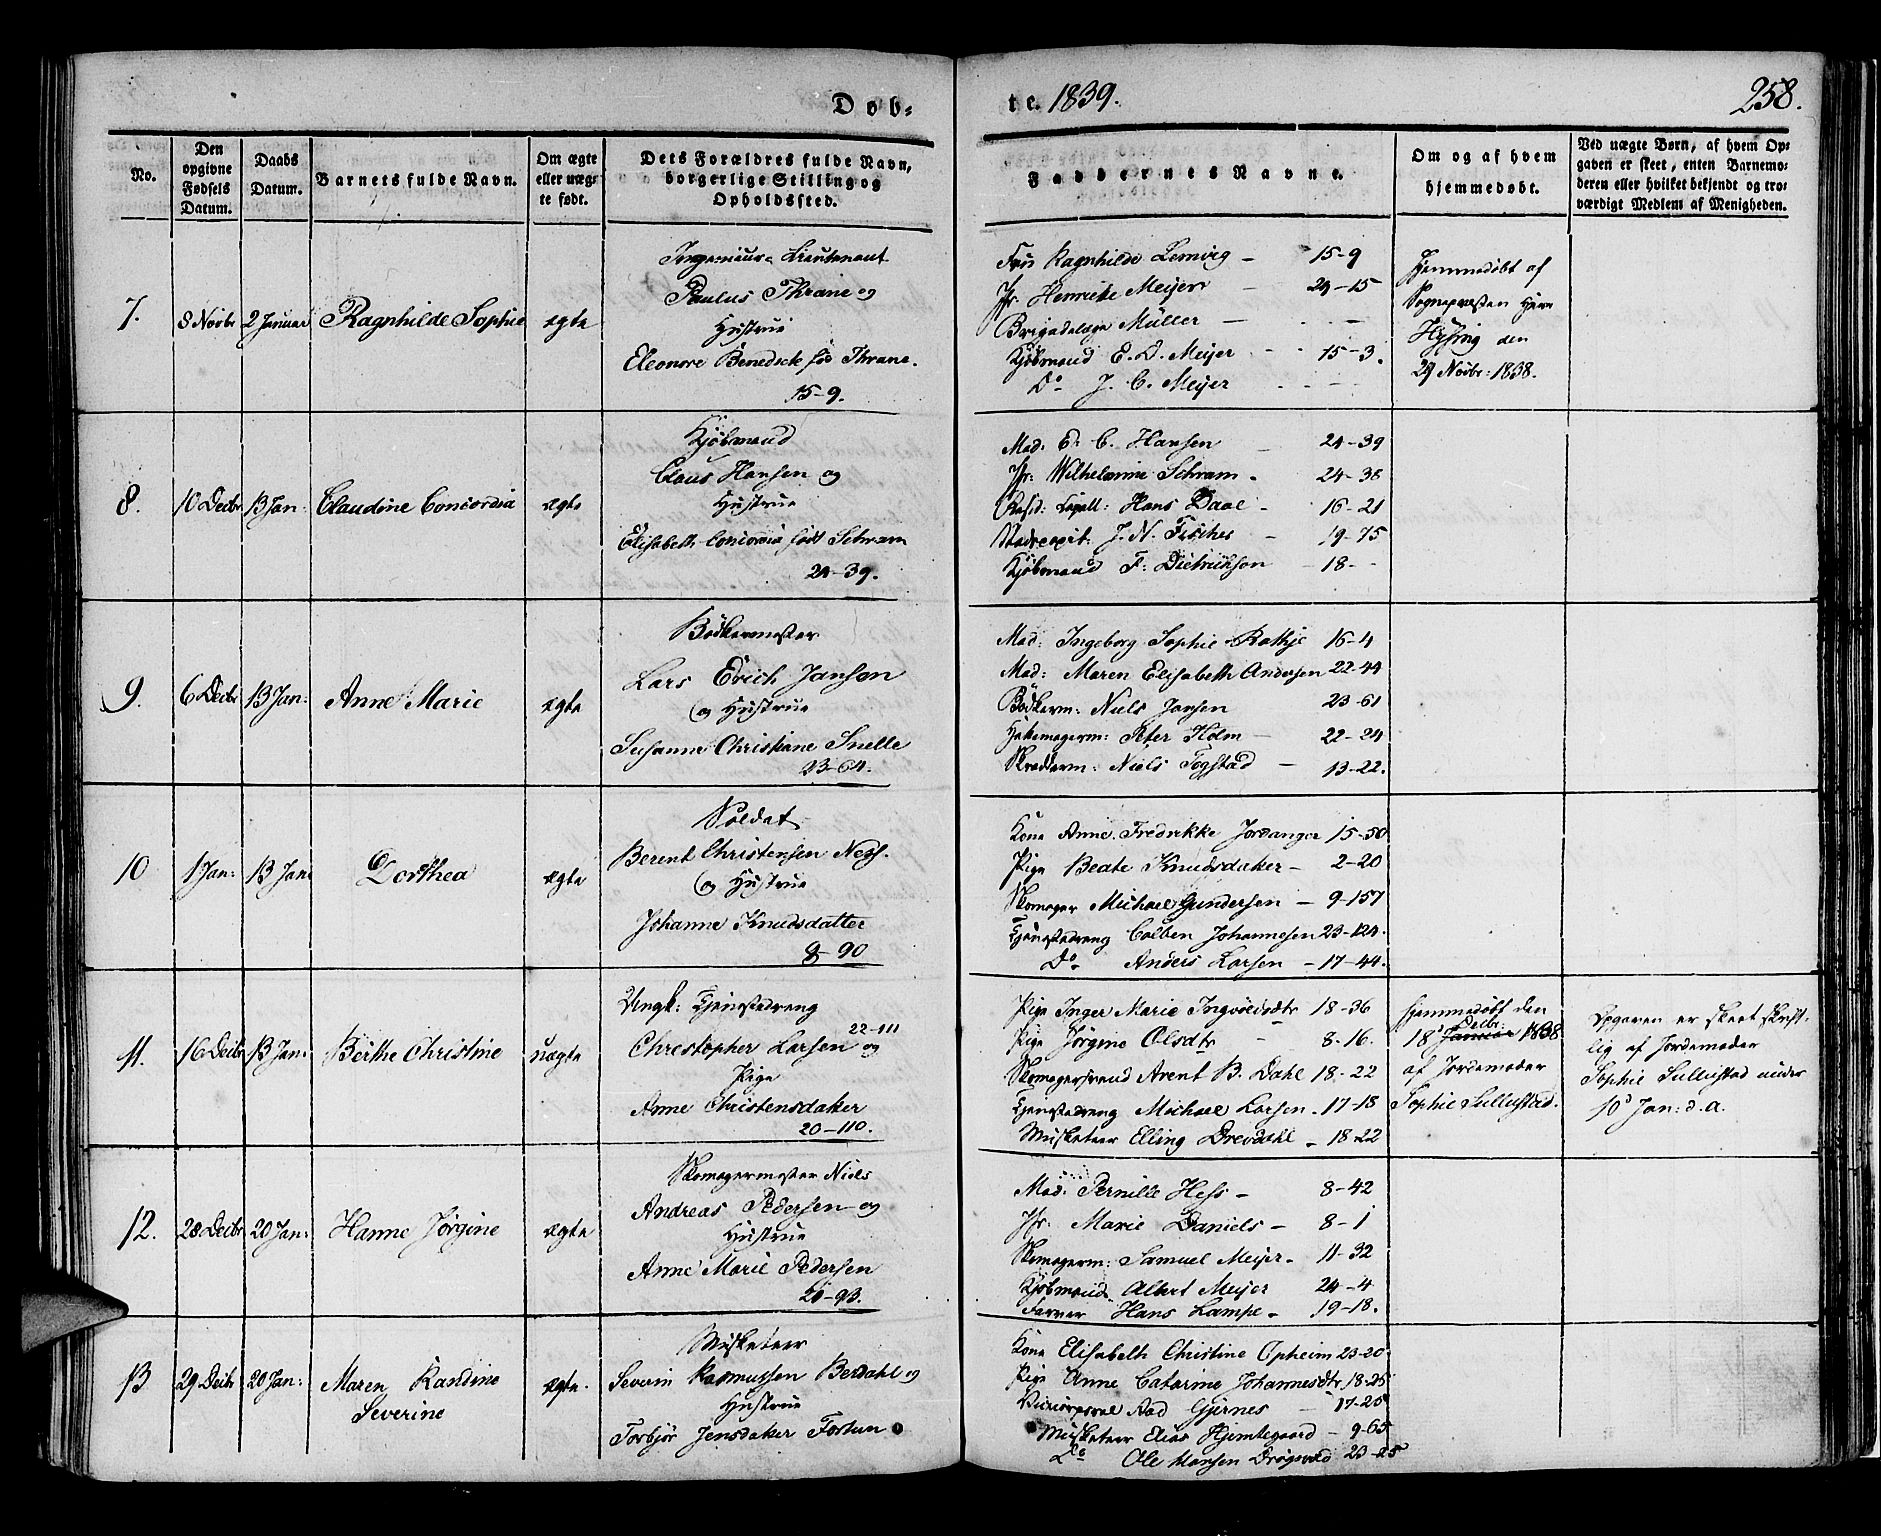 Døb-
te. 1839.
258.
No.
Den
opgivne
Fødsels
Datum.
Daabs
Datum.
Barnets fulde Navn.
Om ægte
eller uæg-
te født.
Dets Forældres fulde Navn,
borgerlige Stilling og
Opholdssted.
Faddernes Navne.
Om og af hvem
hjemmedøbt.
Ved uægte Børn, af hvem Op-
gaven er skeet, enten Barnemo-
deren eller hvilket bekjendt og tro-
værdigt Medlem af Menigheden.
7.
8 Novbr
2 Januar
Ragnhilde Sophie
ægte
Ingenieur-Lieutenant
Paulus Thrane og
Hustrue
Eleonore Benedicte fød Thrane.
15-9.
Frue Ragnhilde Lemvig - 15-9
Jfr. Henriette Meijer - 24-15
Brigadelæge Müller -
Kjøbmand E. D. Meijer - 15-3.
Do J. C. Meijer
Hjemmedøbt af
Sognepræsten Herr
Hysing den
29 Novbr: 1838.
8.
10 Decbr
13 Jan:
Claudine Concordia
ægte
Kjøbmand
Claus Hansen og
Hustrue
Elisabeth Concordia født Schram
24-39.
Mad: E. C. Hansen - 24-39
Jfr: Wilhelmine Schram - 24-38
Hans Daae - 16-21
J. N. Fischer - 19-75
Kjøbmand F: Dietrichson - 18--
9.
6 Decbr
13 Jan:
Anne Marie
ægte
Bødkermester
Lars Erich Jansen
og Hustrue
Susanne Christiane Snelle
23-64.
Mad: Ingeborg Sophie Rathje 16-4
Mad: Maren Elisabeth Andersen 22-44
Bødkerm: Niels Jansen 23-61
Hattemagerm: Peter Holm - 22-24
Skrædderm: Niels Togstad - 13-22.
10
1 Jan:
13 Jan
Dorthea
ægte
Soldat
Berent Christensen Ness.
og Hustrue
Johanne Knudsdatter
8-90
Kone Anne Fredrikke Jordanger 15-50
Pige Beate Knudsdatter - 2-20
Skomager Michael Gundersen - 9-157
Tjenestedreng Colben Johannesen 23-124.
Do Anders Larsen - 17-44.
11.
16 Decbr
13 Jan:
Bërthe Christine
uægte
Ungk: Tjenestedreng
22-111
Christopher Larsen og
Pige
Anne Christensdatter
20-110.
Pige Inger Marie Ingvoldsdtr 18-36
Pige Jørgine Olsdtr - 8-16.
Skomagersvend Arent B. Dahl 18-22
Tjenestedreng Michael Larsen - 17-18
Musketeer Elling Drevdahl - 18-22
Hjemmedøbt den
Decbr:
18d Januar 1838
af Jordemoder
Sophie Sullustad.
Opgaven er skeet skrift-
lig af Jordemoder
Sophie Sullustad under
10d Jan: d. A.
12.
28 Decbr
20 Jan:
Hanne Jørgine
ægte
Skomagermester Niels
Andreas Pedersen og
Hustrue
Anne Marie Pedersen
20-93.
Mad: Pernille Hess - 8-42
Jfr: Marie Daniels - 8-1
Skomagerm: Samuel Meijer - 11-32
Kjøbmand Albert Meijer 24-4
Farver Hans Lampe - 19-18.
13
29 Decbr
20 Jan:
Maren Randine
Severine
ægte.
Musketeer
Severin Rasmussen Berdahl og
Hustrue
Torbjør Jensdatter Fortun
Kone Elisabeth Christine Opheim 23-20.
Pige Anne Catarine Johannesdtr 18-25
Aad Gjernes - 17-25
Musketeer Elias Hjemtegaard - 9-65
Do Ole Hansen Drøgsvold 23-25